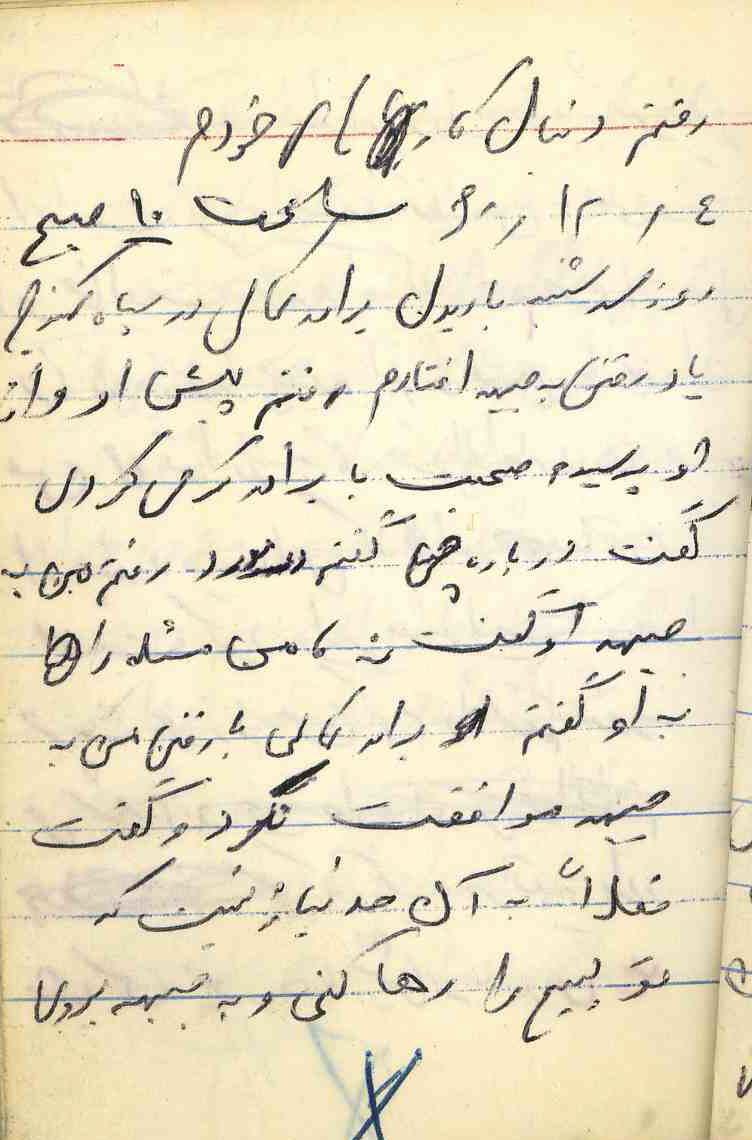 رفتم دنبال کارهای خودم
٤ ر ١٢ ر ٦٠ ساعت ١٠ صبح
روز سه شنبه با دیدن برادر کمالی در سپاه
یاد رفتن به جبهه افتادم رفتم پیش او و از
او پرسیدم صحبت با برادر کردی
گفت درباره چی گفتم در مورد رفتن من به
جبهه او گفت نه کامی مسئله را
به او گفتم برادر کمالی با رفتن من به
جبهه موافقت نکرد و گفت
فعلاً به آن حد نیاز نیست که
تو بسیج را رها کنی و به جبهه بروی